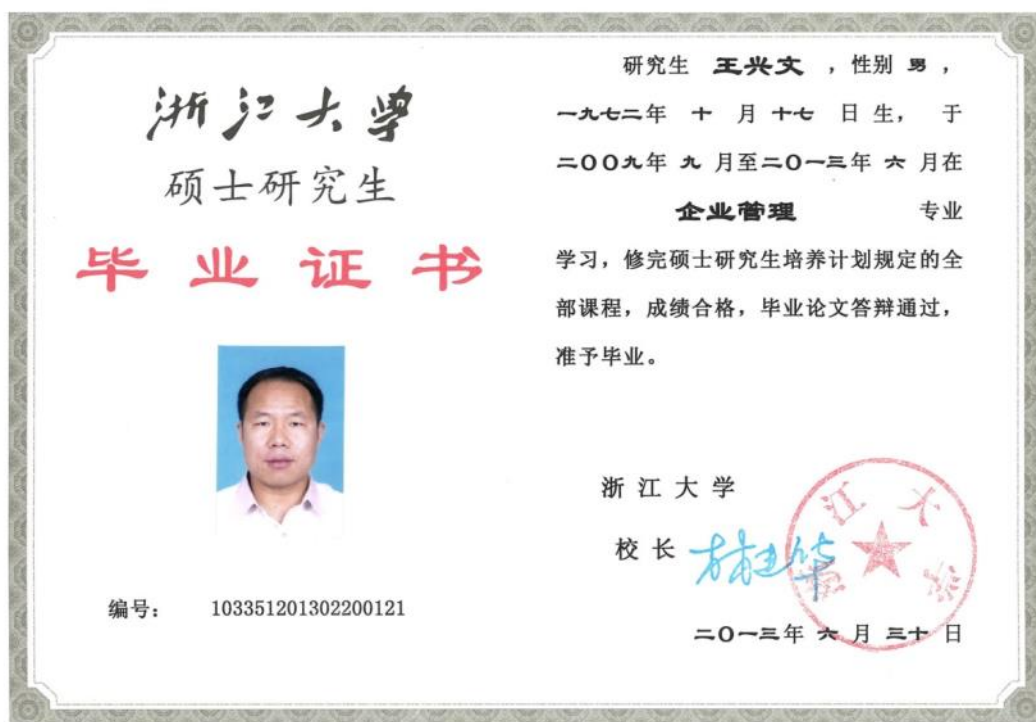 浙江大学
硕士研究生
毕业证书
编号： 103351201302200121
研究生 王兴文 ，性别 男 ，
一九七二年 十 月 十七 日 生， 于
二00九年 九 月至二0一三年 六 月在
企业管理 专业
学习，修完硕士研究生培养计划规定的全
部课程，成绩合格，毕业论文答辩通过，
准予毕业。
浙 江 大 学
校 长 林建华
二0一三年 六 月 三十 日
浙江大学